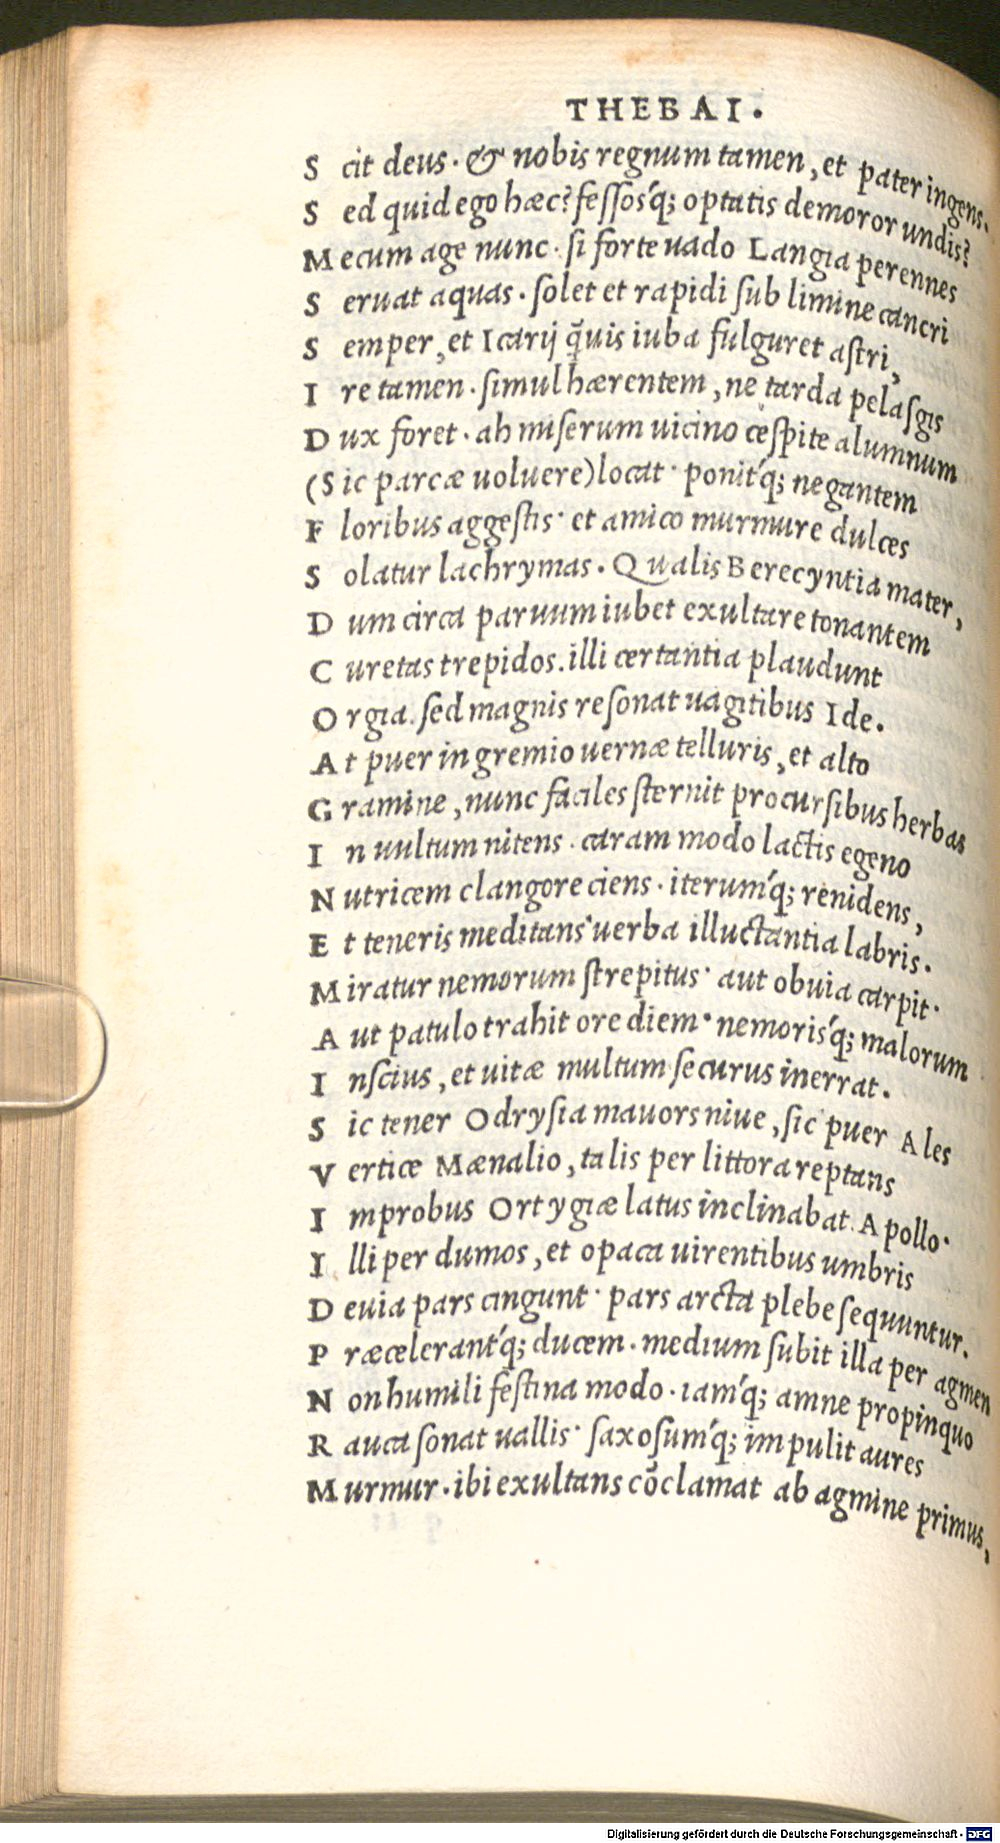 THEBAI.
S cit deus. & nobis regnum tamen, et pater ingens.
S ed quid ego hæc? fessosq́; optatis demoror undis?
M ecum age nunc. si forte uado Langia perennes
S eruat aquas. solet et rapidi sub limine cancri
S emper, et Icarij q̃uis iuba fulguret astri,
I re tamen. simul hærentem, ne tarda pelasgis
D ux foret. ah miserum uicino cęspite alumnum
(S ic parcæ uoluere) locat. ponitq́; negantem
F loribus aggestis. et amico murmure dulces
S olatur lachrymas. Qualis Berecyntia mater,
D um circa paruum iubet exultare tonantem
C uretas trepidos. illi certantia plaudunt
O rgia. sed magnis resonat uagitibus Ide.
A t puer in gremio uernæ telluris, et alto
G ramine, nunc faciles sternit procursibus herbas
I n uultum nitens. caram modo lactis egeno
N utricem clangore ciens. iterumq́; renidens,
E t teneris meditans uerba illuctantia labris.
M iratur nemorum strepitus. aut obuia carpit.
A ut patulo trahit ore diem. nemorisq́; malorum
I nscius, et uitæ multum securus inerrat.
S ic tener Odrysia mauors niue, sic puer Ales
V ertice Mænalio, talis per littora reptans
I mprobus Ortygiæ latus inclinabat Apollo.
I lli per dumos, et opaca uirentibus umbris
D euia pars cingunt. pars arcta plebe sequuntur.
P ræcelerantq́; ducem. medium subit illa per agmen
N on humili festina modo. iamq́; amne propinquo
R auca sonat uallis. saxosumq́; impulit aures
M urmur. ibi exultans cõclamat ab agmine primus,
Digitalisierung gefördert durch die Deutsche Forschungsgemeinschaft - DFG